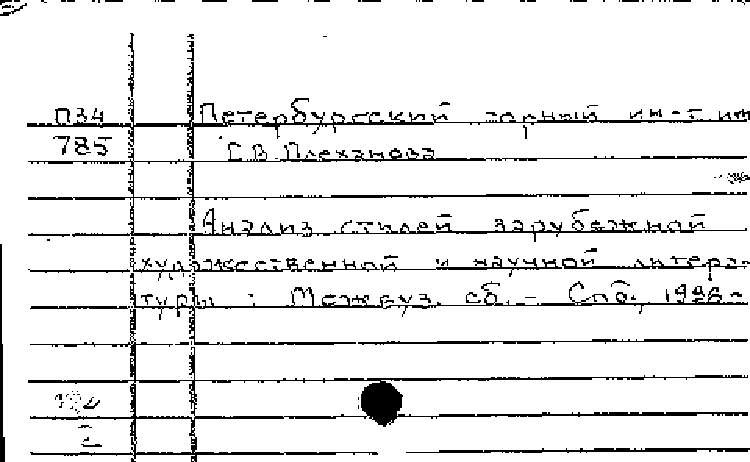 П34 Петербургский горный ин-т им
785 Г.В. Плеханова
Анализ стилей зарубежной
художественной и научной литера-
туры : Межвуз. сб. - Спб.,